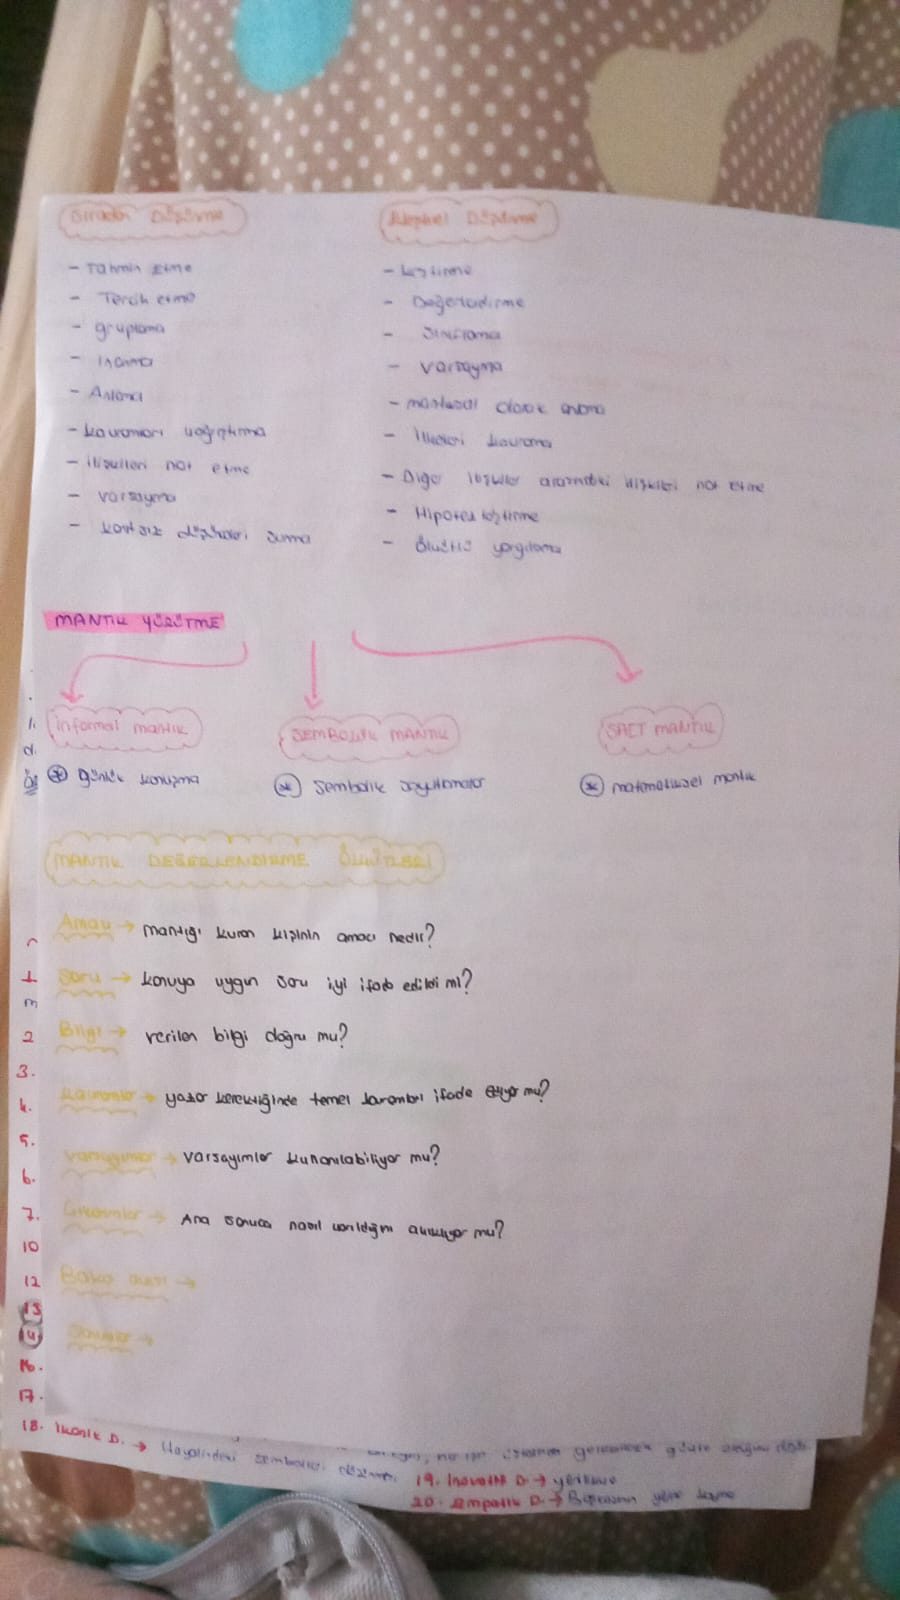 Sıradan Düşünme
- Tahmin etme
- Tercih etme
- gruplama
- İnanma
- Anlama
- kavramları
- ilişkileri not etme
- varsayma
- kanıtsız düşünceleri sunma
Eleştirel Düşünme
- Değerlendirme
- Sınıflama
- varsayma
- mantıksal olarak anlama
- İlkeleri kavrama
- Diğer ilişkiler arasındaki ilişkileri not etme
- Hipotez
- Ölçütlü yargılama
MANTIK YÜRÜTME
informal mantık
* günlük konuşma
SEMBOLİK MANTIK
* sembolik
SALT MANTIK
* matematiksel mantık
MANTIK DEĞERLENDİRME ÖLÇÜTLERİ
Amaç → mantığı kuran kişinin amacı nedir?
Soru → konuya uygun soru iyi ifade edildi mi?
Bilgi → verilen bilgi doğru mu?
Kavramlar → yazar gerektiğinde temel kavramları ifade ediyor mu?
Varsayımlar → varsayımlar kullanılabiliyor mu?
→ Ana sonuca nasıl varıldığını açıklıyor mu?
Bakış açısı →
Sonuçlar →
1.
d.
2
3.
4.
5.
6.
7.
10
12
13
14
16.
17.
18. İkonik D. → Hayalindeki sembolleri
19. İnovatif D. →
20. Empatik D. → Başkasının yerine